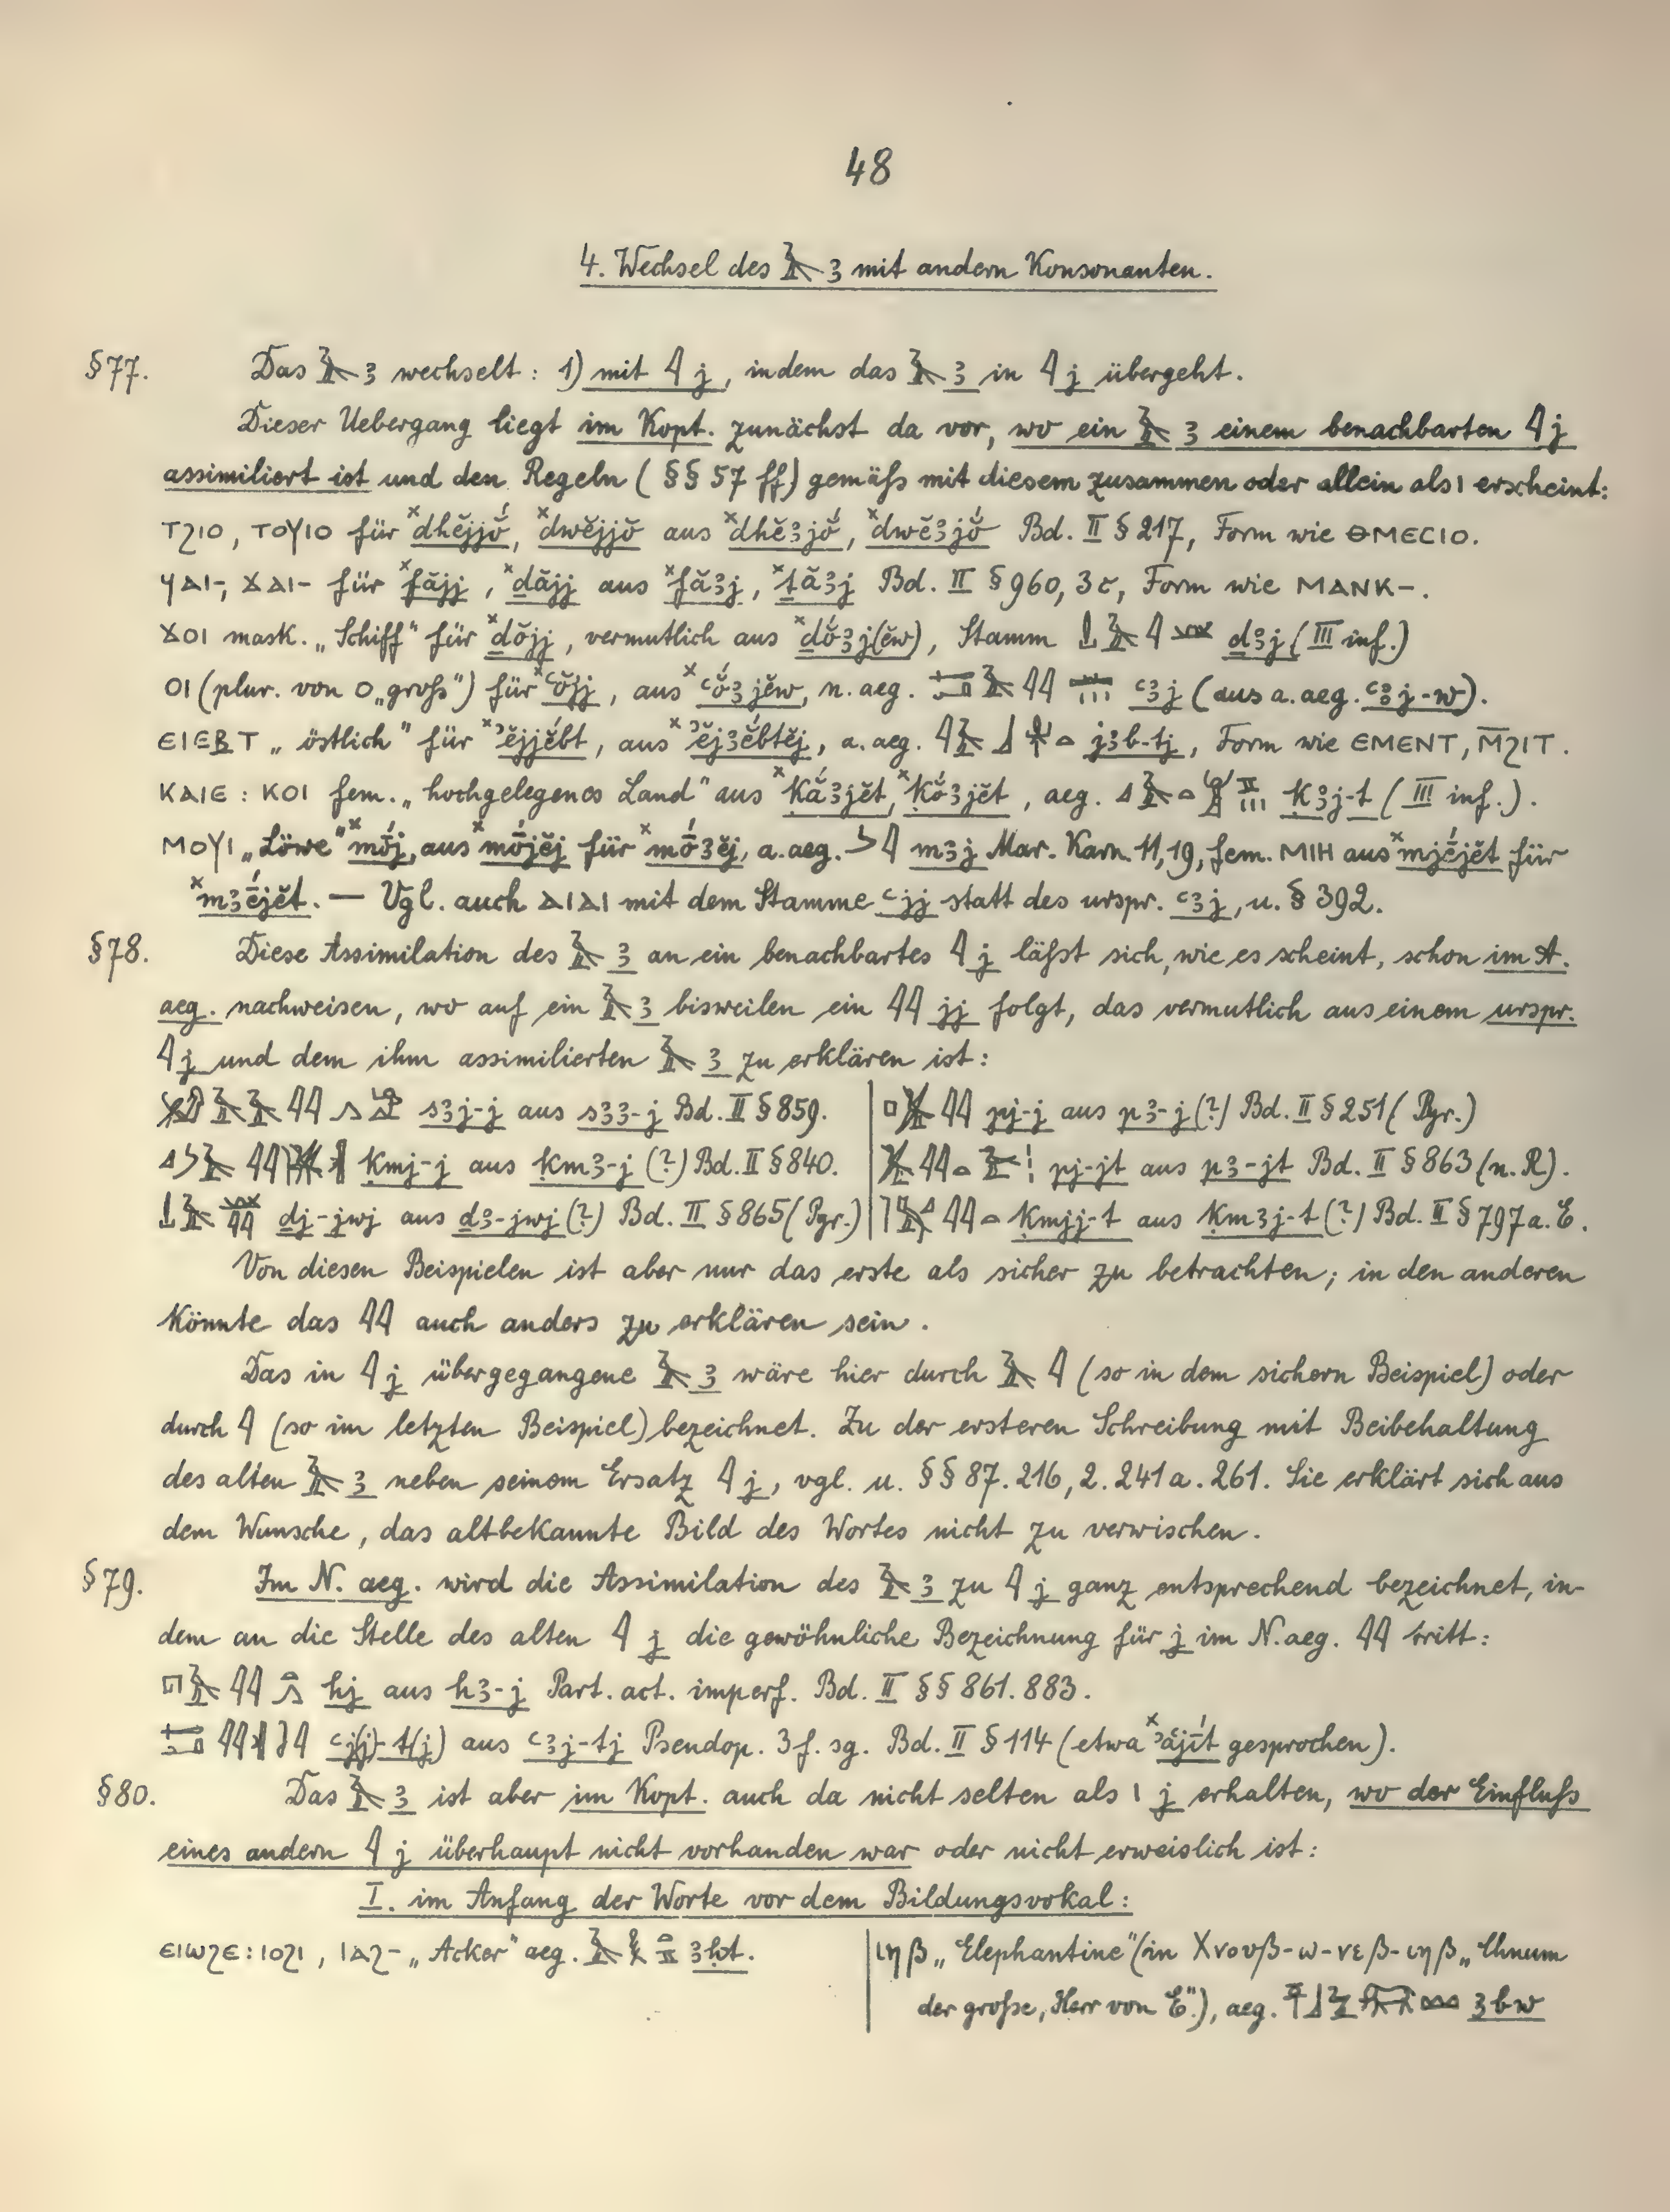 48
4. Wechsel des 𓄿 ꜣ mit andern Konsonanten.
§77. Das 𓄿 ꜣ wechselt: 1) mit 𓇋 j, indem das 𓄿 ꜣ in 𓇋 j übergeht.
Dieser Uebergang liegt im Kopt. zunächst da vor, wo ein 𓄿 ꜣ einem benachbarten 𓇋 j
assimiliert ist und den Regeln (§§ 57 ff) gemäß mit diesem zusammen oder allein als ⲓ erscheint:
ⲧϩⲓⲟ, ⲧⲟⲩⲓⲟ für ˣdhĕjjŏ́, ˣdwĕjjŏ aus ˣdhĕꜣjŏ́, ˣdwĕꜣjŏ́ Bd. II § 217, Form wie ⲑⲙⲉⲥⲓⲟ.
ϥⲁⲓ-, ϫⲁⲓ- für ˣfăjj, ˣḏăjj aus ˣfăꜣj, ˣṯăꜣj Bd. II § 960, 3c, Form wie ⲙⲁⲛⲕ-.
ϫⲟⲓ mask. „Schiff" für ˣḏŏjj, vermutlich aus ˣḏŏ́ꜣj(ĕw), Stamm ḏꜣj (III inf.)
ⲟⲓ (plur. von ⲟ „groß") für ˣꜥŏjj, aus ˣꜥŏ́ꜣjĕw, n. aeg. ꜥꜣj (aus a. aeg. ꜥꜣj-w).
ⲉⲓⲉⲃⲧ „östlich" für ˣꜣĕjjĕ́bt, aus ˣꜣĕjꜣĕ́btĕj, a. aeg. jꜣb-tj, Form wie ⲉⲙⲉⲛⲧ, ⲙ̄ϩⲓⲧ.
ⲕⲁⲓⲉ : ⲕⲟⲓ fem. „hochgelegenes Land" aus ˣḳắꜣjĕt, ˣḳŏ́ꜣjĕt, aeg. ḳꜣj-t (III inf.).
ⲙⲟⲩⲓ „Löwe" ˣmṓj, aus ˣmṓjĕj für ˣmṓꜣĕj, a. aeg. mꜣj Mar. Karn. 11,19, fem. ⲙⲓⲏ aus ˣmjḗjĕt für
ˣmꜣḗjĕt. — Vgl. auch ⲁⲓⲁⲓ mit dem Stamme ꜥjj statt des urspr. ꜥꜣj, u. § 392.
§78. Diese Assimilation des 𓄿 ꜣ an ein benachbartes 𓇋 j läßt sich, wie es scheint, schon im A.
aeg. nachweisen, wo auf ein 𓄿 ꜣ bisweilen ein 𓇋𓇋 jj folgt, das vermutlich aus einem urspr.
𓇋 j und dem ihm assimilierten 𓄿 ꜣ zu erklären ist:
𓄿𓄿𓇋𓇋 sꜣj-j aus sꜣꜣ-j Bd. II § 859.
𓇋𓇋 ḳmj-j aus ḳmꜣ-j (?) Bd. II § 840.
ḏj-jwj aus ḏꜣ-jwj (?) Bd. II § 865 (Pyr.)
𓇋𓇋 pj-j aus pꜣ-j (?) Bd. II § 251 (Pyr.)
𓇋𓇋 pj-jt aus pꜣ-jt Bd. II § 863 (n. R).
𓇋𓇋 ḳmjj-t aus ḳmꜣj-t (?) Bd. II § 797 a. E.
Von diesen Beispielen ist aber nur das erste als sicher zu betrachten; in den anderen
könnte das 𓇋𓇋 auch anders zu erklären sein.
Das in 𓇋 j übergegangene 𓄿 ꜣ wäre hier durch 𓄿 𓇋 (so in dem sichern Beispiel) oder
durch 𓇋 (so im letzten Beispiel) bezeichnet. Zu der ersteren Schreibung mit Beibehaltung
des alten 𓄿 ꜣ neben seinem Ersatz 𓇋 j, vgl. u. §§ 87. 216, 2. 241 a. 261. Sie erklärt sich aus
dem Wunsche, das altbekannte Bild des Wortes nicht zu verwischen.
§79. Im N. aeg. wird die Assimilation des 𓄿 ꜣ zu 𓇋 j ganz entsprechend bezeichnet, in-
dem an die Stelle des alten 𓇋 j die gewöhnliche Bezeichnung für j im N. aeg. 𓇋𓇋 tritt:
𓉔𓄿𓇋𓇋 hj aus hꜣ-j Part. act. imperf. Bd. II §§ 861. 883.
𓇋𓇋 ꜥj(j)-t(j) aus ꜥꜣj-tj Pseudop. 3 f. sg. Bd. II § 114 (etwa ˣꜣăjī́t gesprochen).
§80. Das 𓄿 ꜣ ist aber im Kopt. auch da nicht selten als ⲓ j erhalten, wo der Einfluß
eines andern 𓇋 j überhaupt nicht vorhanden war oder nicht erweislich ist:
I. im Anfang der Worte vor dem Bildungsvokal:
ⲉⲓⲱϩⲉ : ⲓⲟϩⲓ, ⲓⲁϩ- „Acker" aeg. ꜣḥt.
ιηβ „Elephantine" (in Χνουβ-ω-νεβ-ιηβ „Chnum
der große, Herr von E"), aeg. ꜣbw